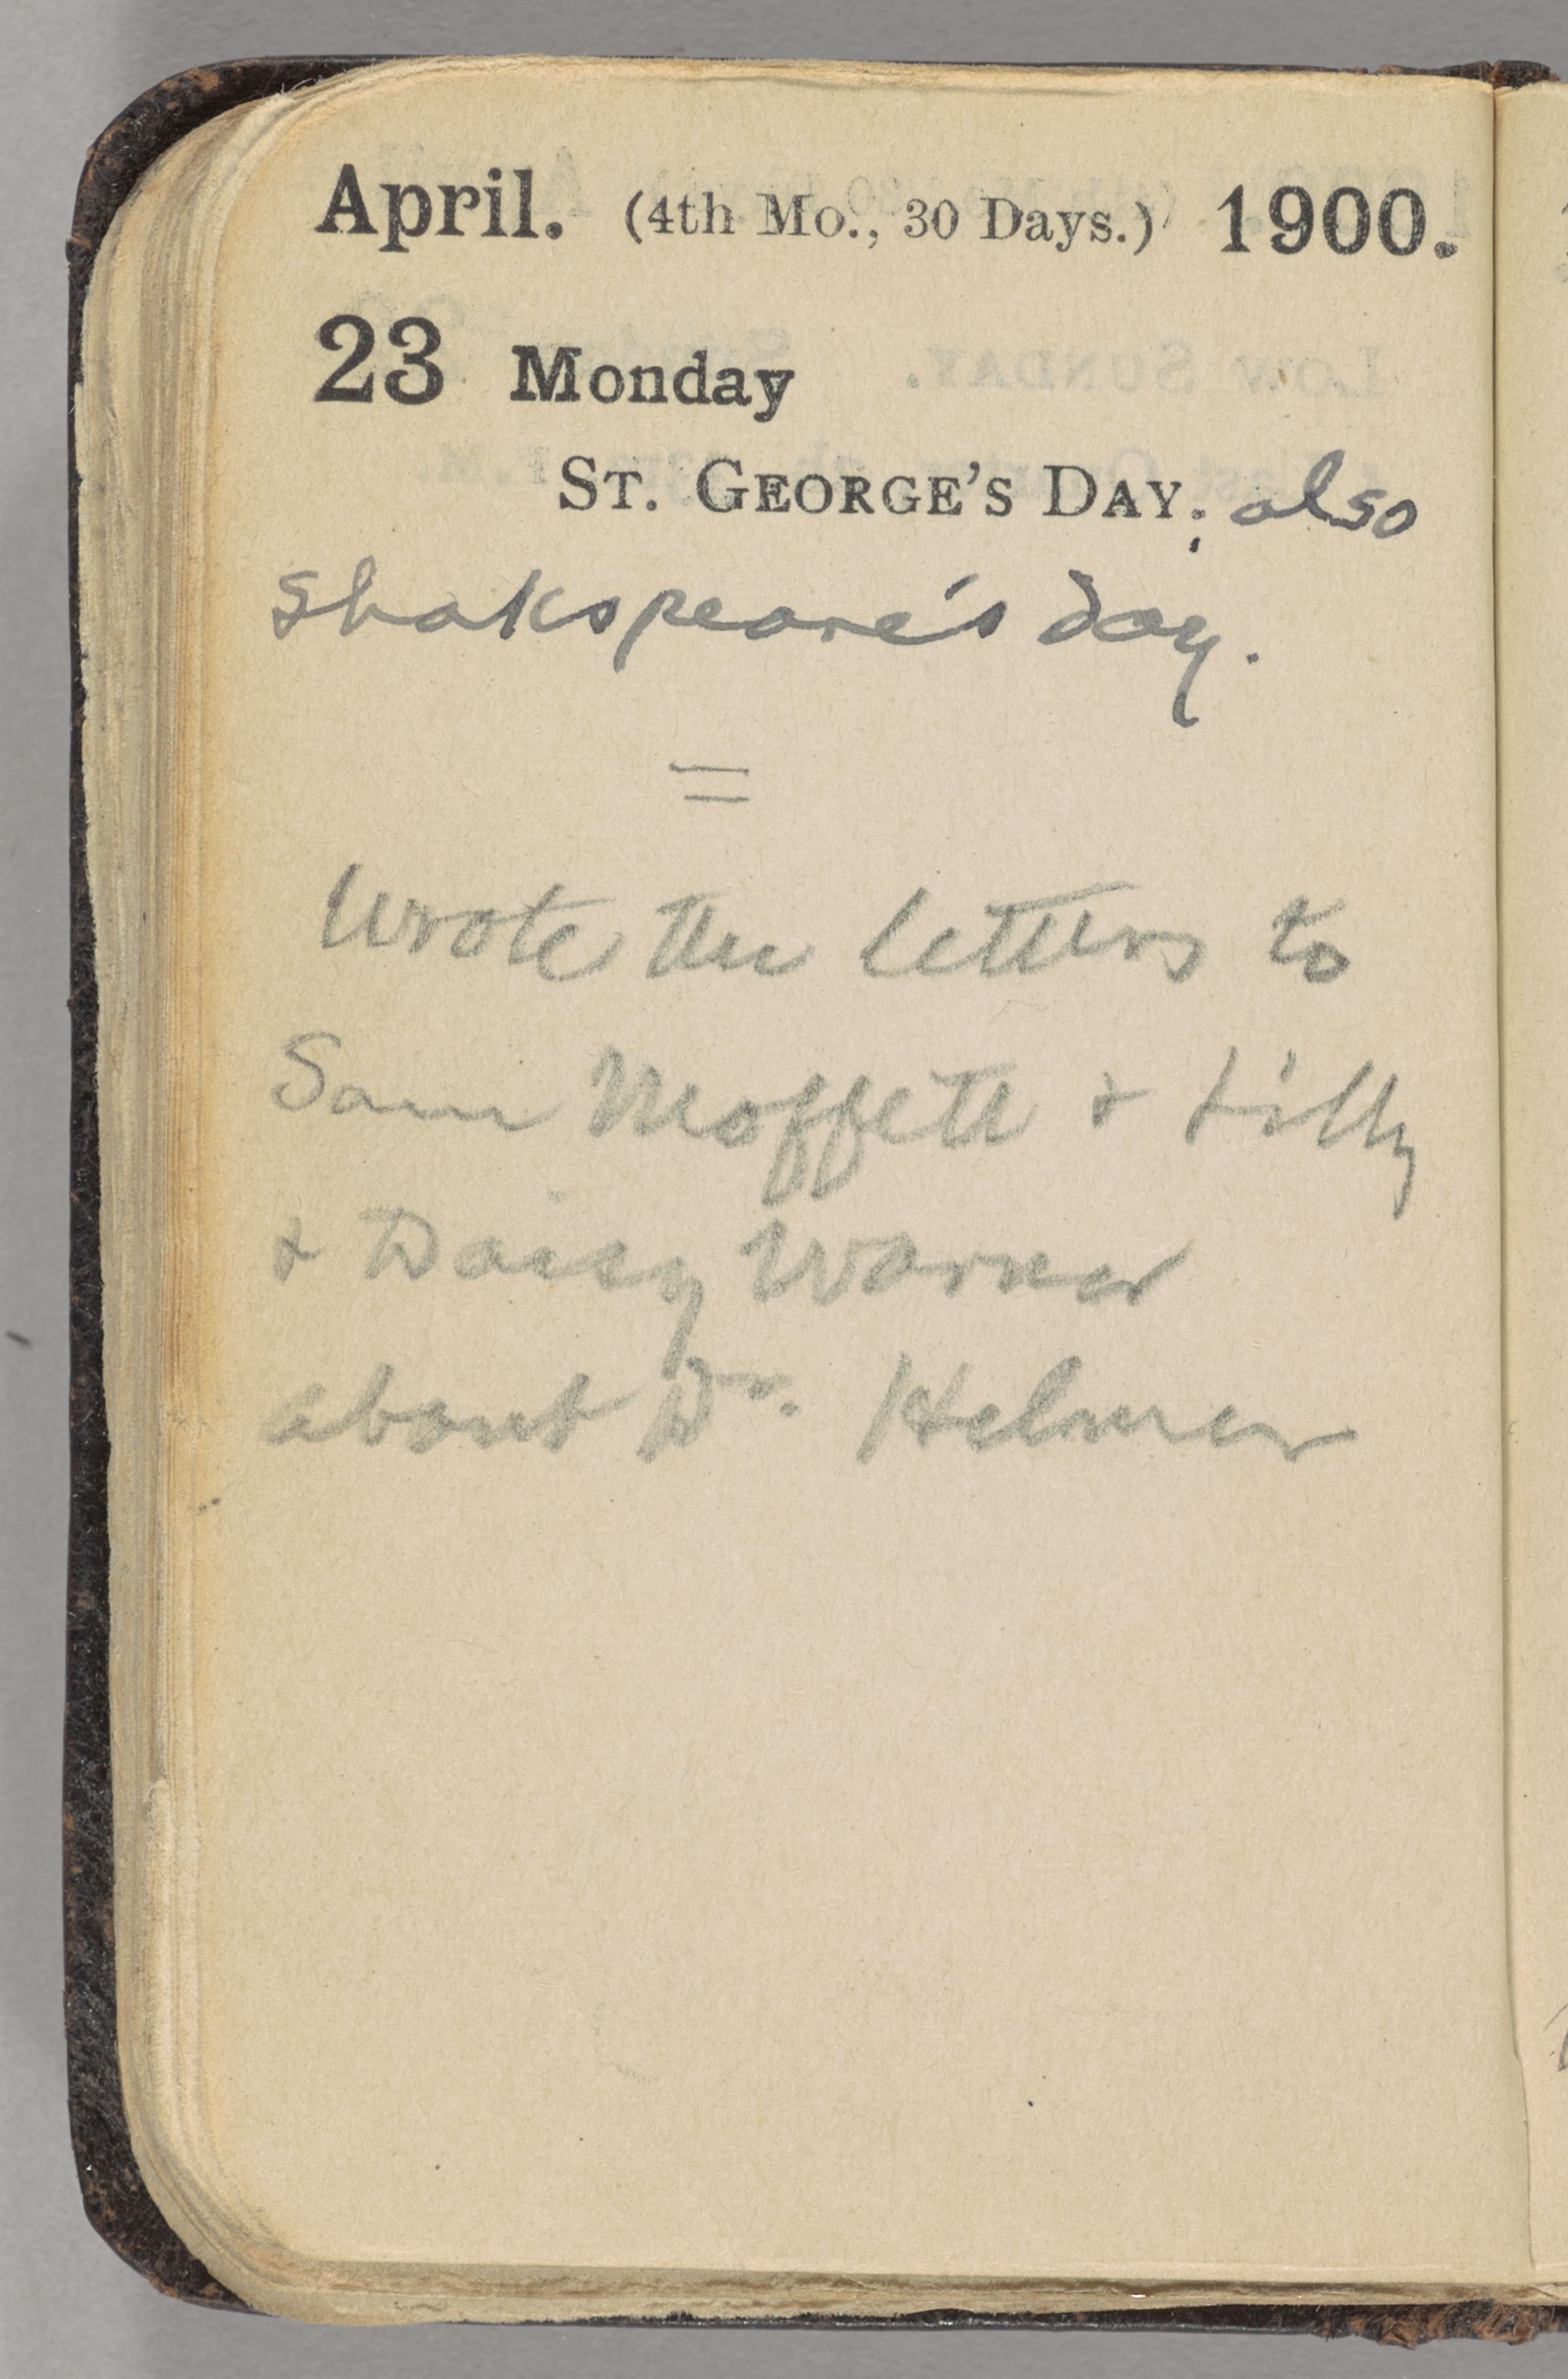 April. (4th Mo., 30 Days.) 1900.
23 Monday
ST. GEORGE'S DAY; also
Shakspeare's day.
=
Wrote the letters to
Sam Moffett & Lilly
& Daisy Warner
about Dr. Helmer
LOW SUNDAY.